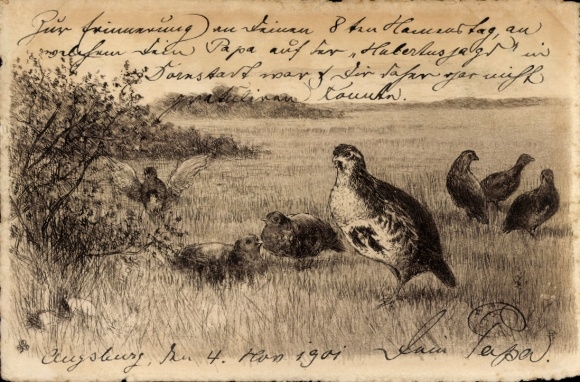 Zur Erinnerung an Deinen 8ten Namenstag, an
welchem Dein Papa auf der „Hubertusjagd" in
Dornstadt war & Dir daher gar nicht
gratulieren konnte.
Augsburg, den 4. Nov 1901
Dein Papa.